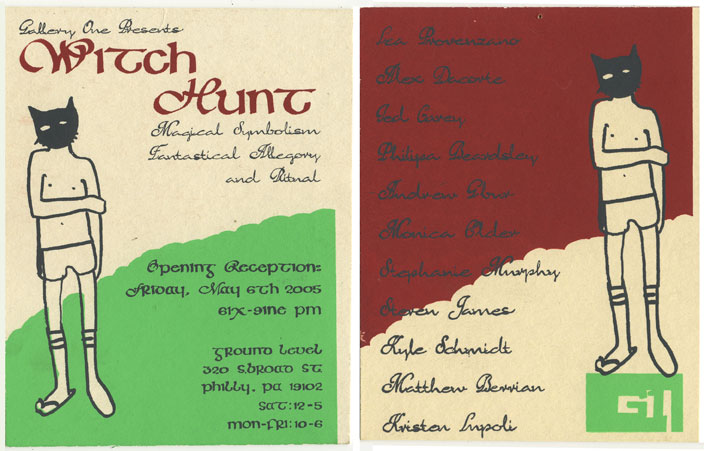 Gallery One Presents
Witch
Hunt
Magical Symbolism
Fantastical Allegory
and Ritual
Opening Reception:
Friday, May 6th 2005
six-nine pm
ground level
320 S.Broad St
philly, pa 19102
Sat:12-5
mon-fri:10-6
Provenzano
Alex Dacorte
Philipa Beardsley
Andrew Gbur
Monica
Stephanie Murphy
Steven James
Kyle Schmidt
Matthew Berrian
Kristen Lupoli